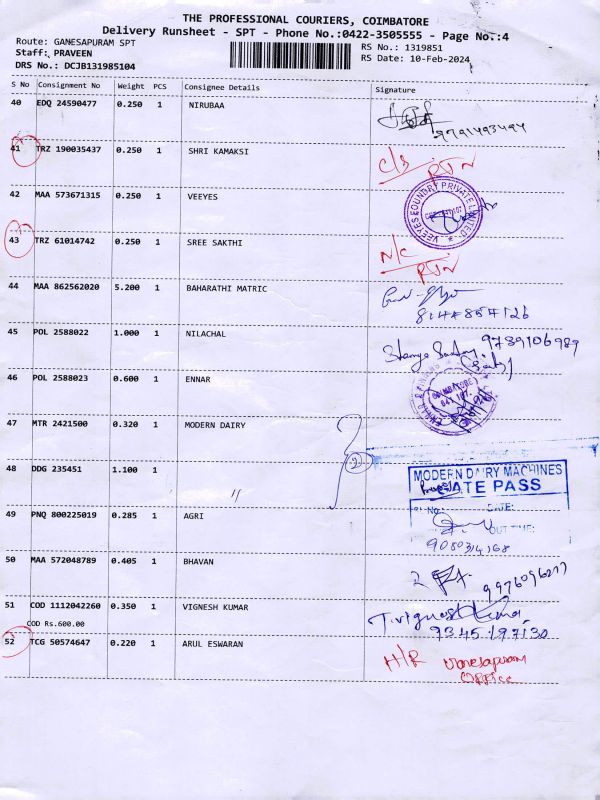 THE PROFESSIONAL COURIERS, COIMBATORE
Delivery Runsheet - SPT - Phone No.:0422-3505555 - Page No.:4
Route: GANESAPURAM SPT RS No.: 1319851
Staff: PRAVEEN RS Date: 10-Feb-2024
DRS No.: DCJB131985104
S No Consignment No Weight PCS Consignee Details Signature
40 EDQ 24590477 0.250 1 NIRUBAA
9791493494
41 TRZ 190035437 0.250 1 SHRI KAMAKSI C/S
RTN
42 MAA 573671315 0.250 1 VEEYES
VEEYES FOUNDRY PRIVATE LIMITED
43 TRZ 61014742 0.250 1 SREE SAKTHI N/C
RTN
44 MAA 862562020 5.200 1 BAHARATHI MATRIC
8144854126
45 POL 2588022 1.000 1 NILACHAL 9789106989
46 POL 2588023 0.600 1 ENNAR
COIMBATORE
641 107.
47 MTR 2421500 0.320 1 MODERN DAIRY
2
48 DDG 235451 1.100 1 "
MODERN DAIRY MACHINES
GATE PASS
49 PNQ 800225019 0.285 1 AGRI
DATE:
OUT TIME:
9080314168
50 MAA 572048789 0.405 1 BHAVAN
9976096277
51 COD 1112042260 0.350 1 VIGNESH KUMAR T.vignesh Kumar
COD Rs.600.00 9345197130
52 TCG 50574647 0.220 1 ARUL ESWARAN H/R
office